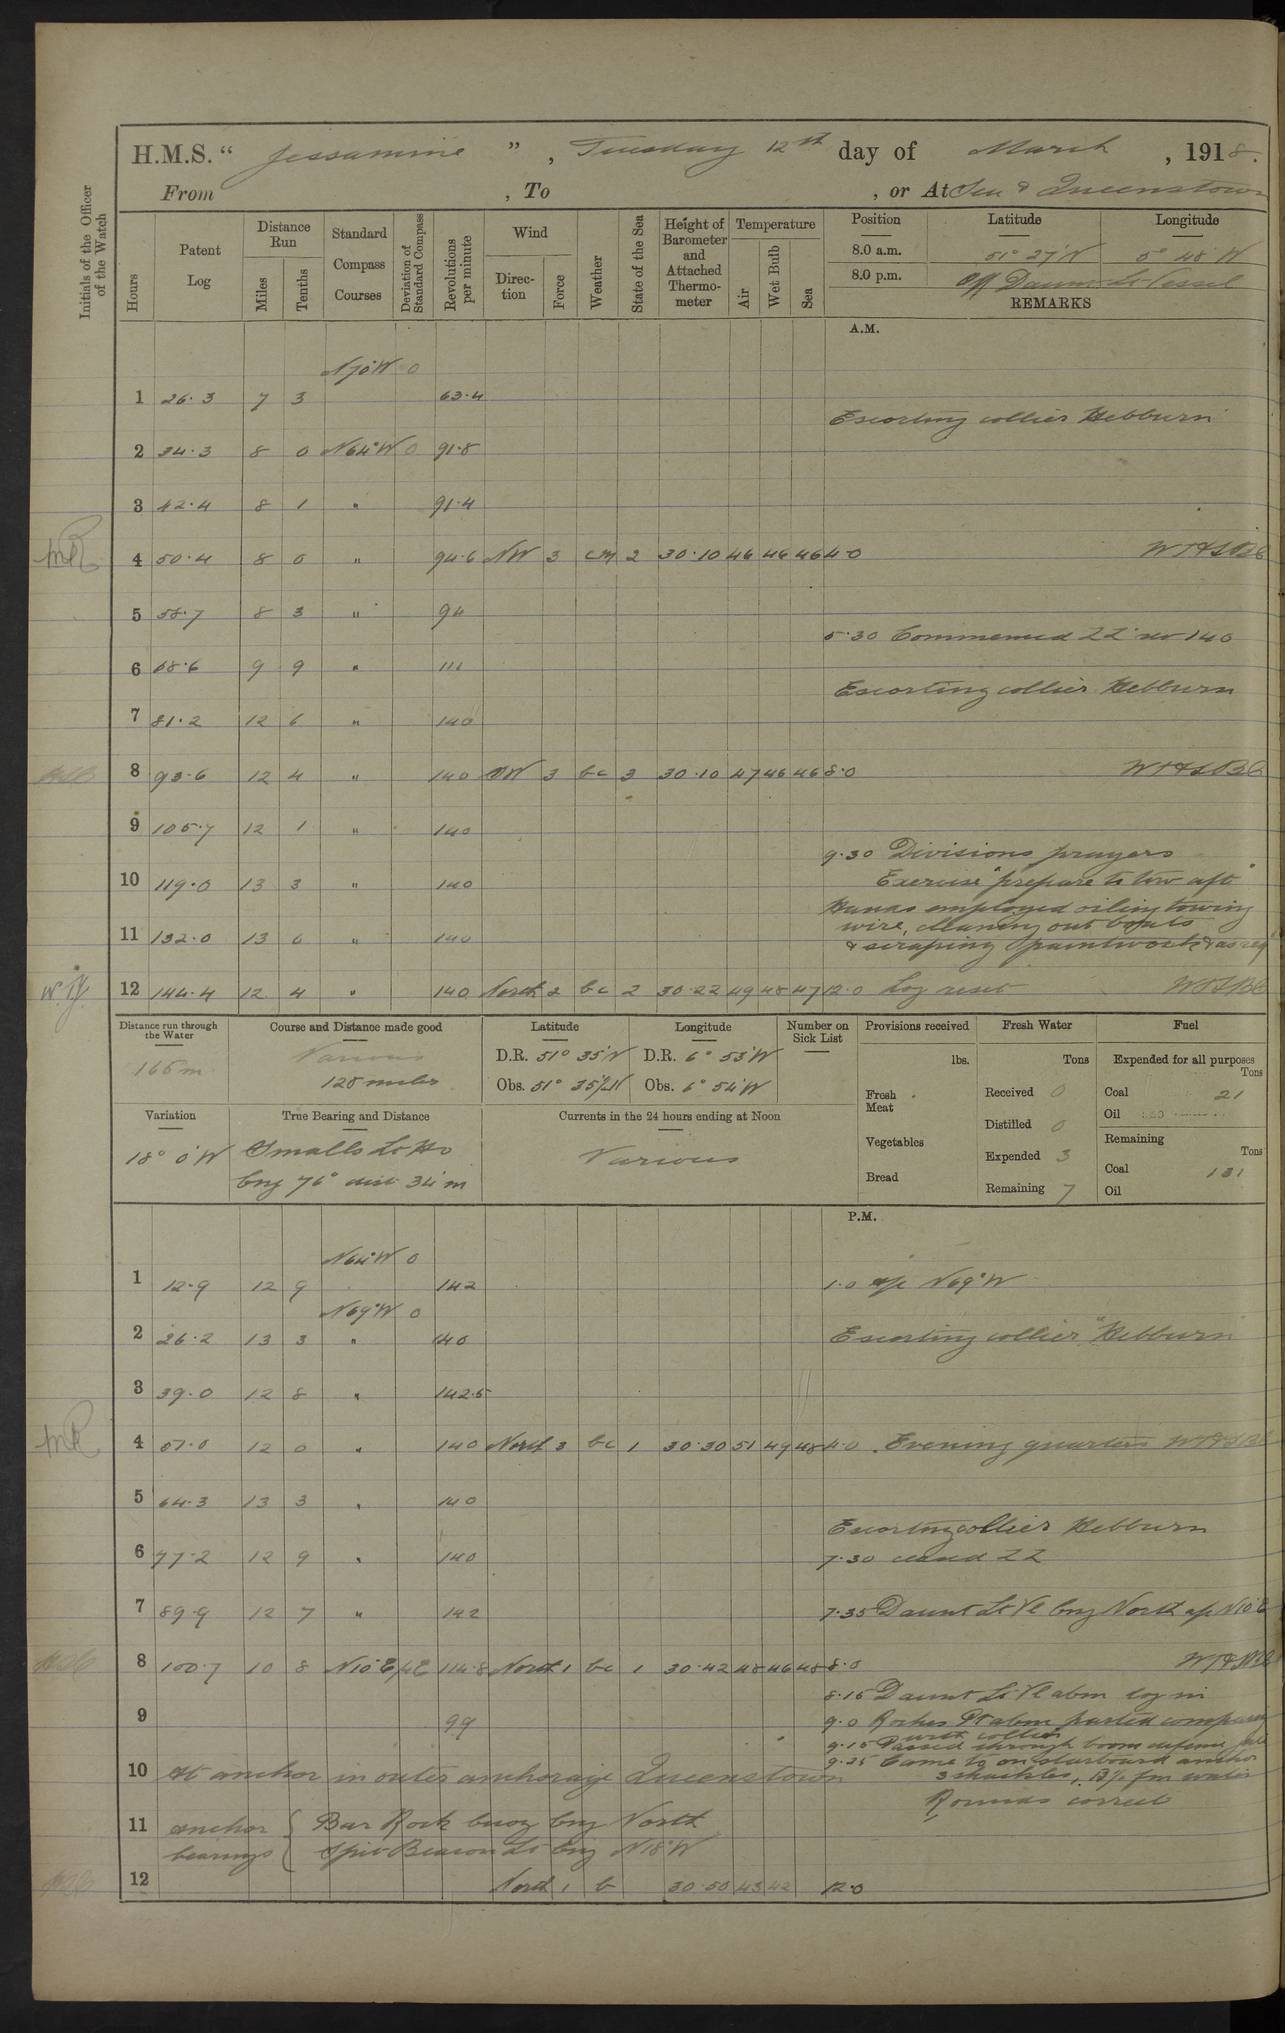 H.M.S. “ Jessamine ” , Tuesday 12th day of March , 1918.
From , To , or At Sea & Queenstown
Initials of the Officer of the Watch
Hours
Patent Log
Distance Run
Miles
Tenths
Standard Compass Courses
Deviation of Standard Compass
Revolutions per minute
Wind
Direction
Force
Weather
State of the Sea
Height of Barometer and Attached Thermometer
Temperature
Air
Wet Bulb
Sea
Position Latitude Longitude
8.0 a.m. 51° 27' N 5° 48' W
8.0 p.m. Off Daunt Lt Vessel
REMARKS
A.M.
N70°W 0
1 26.3 7 3 63.4
Escorting collier Hebburn
2 34.3 8 0 N64°W 0 91.8
3 42.4 8 1 " 91.4
4 50.4 8 0 " 94.6 NW 3 cm 2 30.10 46 46 46 4.0
5 58.7 8 3 " 94
5.30 Commenced ZZ rev 140
6 68.6 9 9 " 111
Escorting collier Hebburn
7 81.2 12 6 " 140
8 93.6 12 4 " 140 NW 3 bc 3 30.10 47 46 46 8.0
9 105.7 12 1 " 140
9.30 Divisions prayers
10 119.0 13 3 " 140 Exercise "prepare to tow aft"
Hands employed oiling towing
wire, cleaning out boats
11 132.0 13 0 " 140 & scraping paintwork & as req
12 144.4 12 4 " 140 North 2 bc 2 30.22 49 48 47 12.0 Log reset
Distance run through the Water
165 m
Course and Distance made good
Various
128 miles
Latitude
D.R. 51° 35' N
Obs. 51° 35½' N
Longitude
D.R. 6° 53' W
Obs. 6° 54' W
Number on Sick List
Provisions received
lbs.
Fresh Meat
Vegetables
Bread
Fresh Water
Tons
Received 0
Distilled 0
Expended 3
Remaining 7
Fuel
Expended for all purposes
Tons
Coal 21
Oil
Remaining
Tons
Coal 131
Oil
Variation
18° 0' W
True Bearing and Distance
Smalls Lt Ho
brg 76° dist 34' m
Currents in the 24 hours ending at Noon
Various
P.M.
N64°W 0
1 12.9 12 9 142 1.0 a/c N69°W
N69°W 0
2 26.2 13 3 " 140 Escorting collier "Hebburn"
3 39.0 12 8 " 142.5
4 51.0 12 0 " 140 North 3 bc 1 30.30 51 49 48 4.0 Evening quarters
5 64.3 13 3 " 140
Escorting collier Hebburn
6 77.2 12 9 " 140 7.30 ceased ZZ
7 89.9 12 7 " 142 7.35 Daunt Lt Vl brg North a/c N10°E
8 100.7 10 8 N10°E ½E 114.8 North 1 bc 1 30.42 48 46 48 8.0
8.15 Daunt Lt Vl abm log in
9 99 9.0 Roches Pt abm parted company
with collier
9.15 Passed through boom defence gate
9.25 Came to on starboard anchor
10 At anchor in outer anchorage Queenstown 3 shackles, 13½ fm water
Rounds correct
11 anchor bearings { Bar Rock buoy brg North
Spit Beacon Lt brg N18°W
12 North 1 b 30.50 43 42 12.0